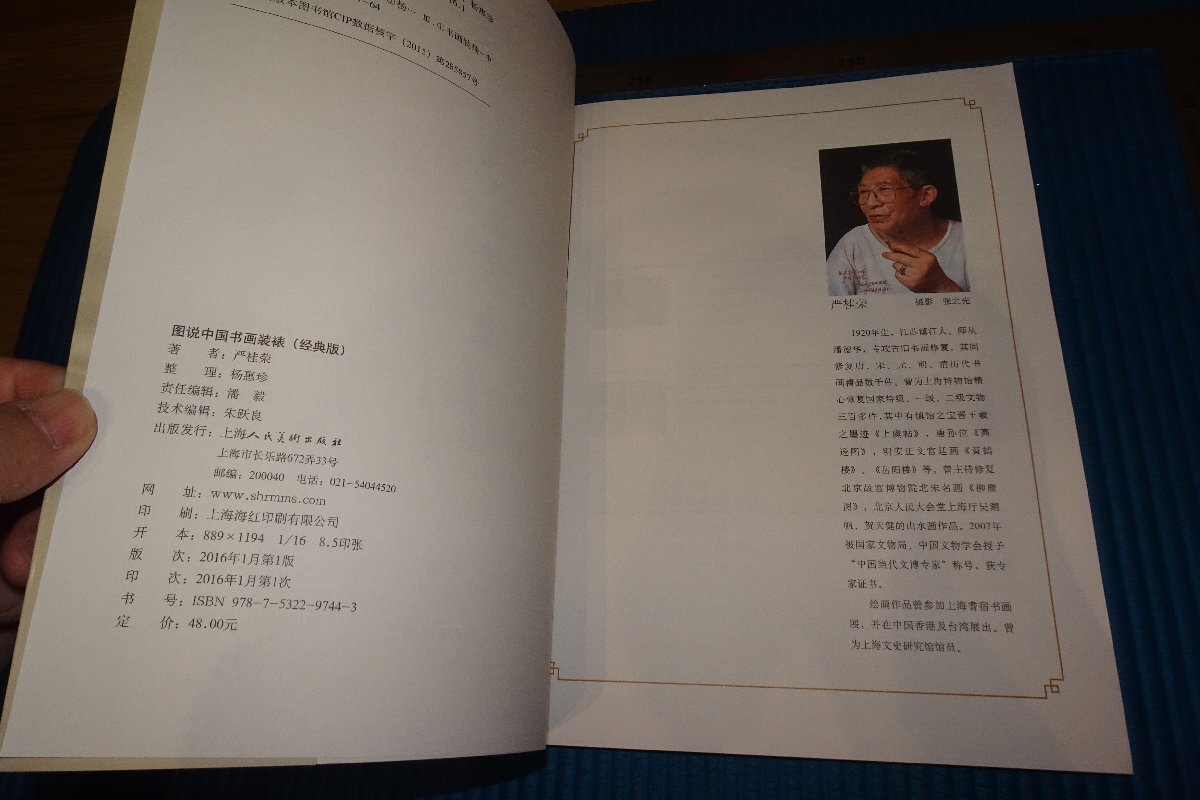 版本图书馆CIP数据核字（2015）第285857号
图说中国书画装裱（经典版）
著 者：严桂荣
整 理：杨惠珍
责任编辑：潘 毅
技术编辑：朱跃良
出版发行：上海人民美術出版社
上海市长乐路672弄33号
邮编：200040 电话：021-54044520
网 址：www.shrmms.com
印 刷：上海海红印刷有限公司
开 本：889×1194 1/16 8.5印张
版 次：2016年1月第1版
印 次：2016年1月第1次
书 号：ISBN 978-7-5322-9744-3
定 价：48.00元
严桂荣
摄影 张之先
1920年生，江苏镇江人，师从
潘德华，专攻古旧书画修复。其间
修复唐、宋、元、明、清历代书
画精品数千件。曾为上海博物馆精
心修复国家特级、一级、二级文物
三百多件，其中有镇馆之宝晋王羲
之墨迹《上虞帖》、唐孙位《高
逸图》，明安正文宫廷画《黄鹤
楼》、《岳阳楼》等。曾主持修复
北京故宫博物院北宋名画《柳雁
图》，北京人民大会堂上海厅吴湖
帆、贺天健的山水画作品。2007年
被国家文物局、中国文物学会授予
“中国当代文博专家”称号，获专
家证书。
绘画作品曾参加上海耆宿书画
展，并在中国香港及台湾展出。曾
为上海文史研究馆馆员。